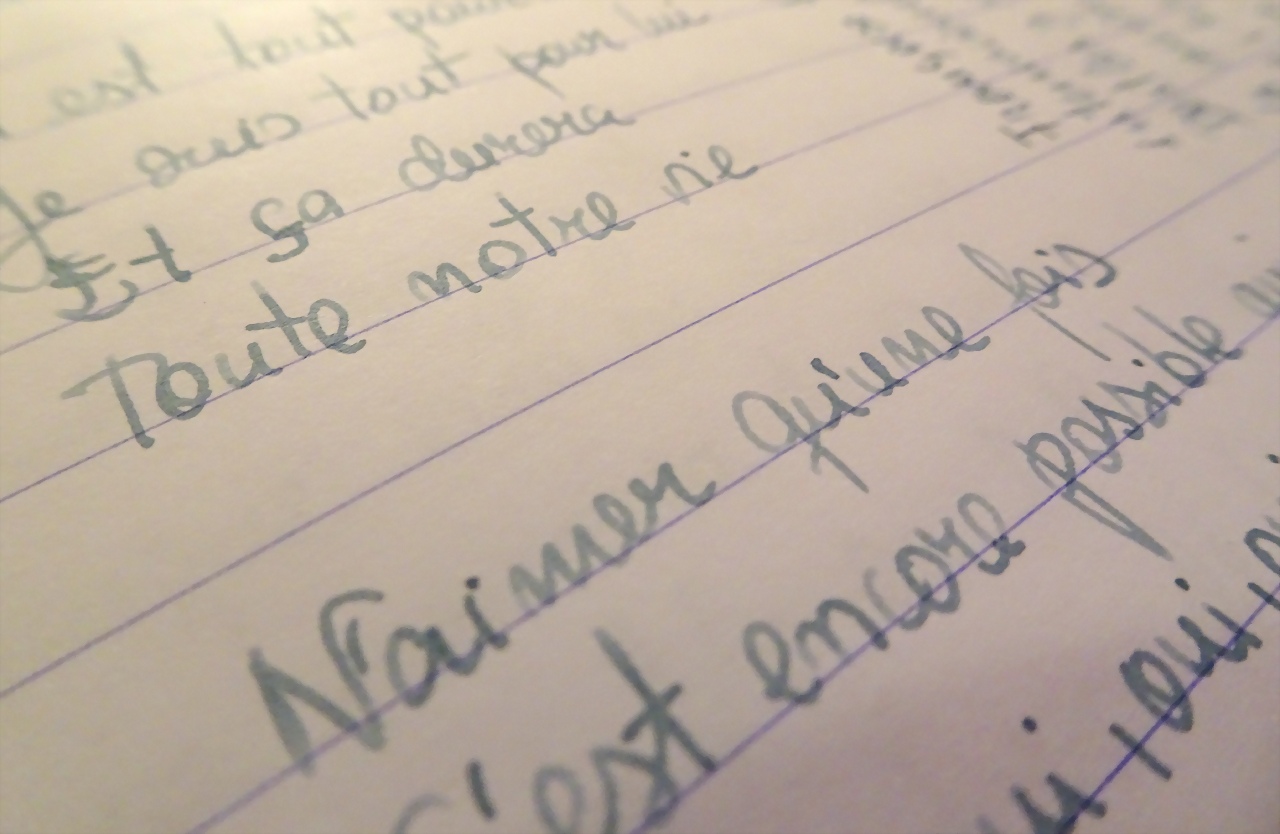 est tout pour
Je suis tout pour lui
Et ça durera
Toute notre vie
N'aimer qu'une fois
c'est encore possible
oui, oui,